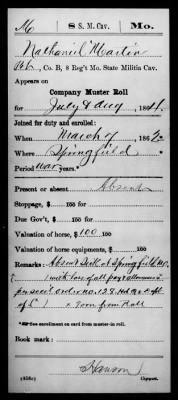 M 8 S. M. Cav. Mo.
Nathaniel Martin
Pvt., Co. B, 8 Reg't Mo. State Militia Cav.
Appears on
Company Muster Roll
for July & Aug, 186
Joined for duty and enrolled:
When March 7, 1862
Where Springfield
Period war years.*
Present or absent Absent
Stoppage, $ 100 for
Due Gov't, $ 100 for
Valuation of horse, $ 100 100
Valuation of horse equipments, $ 100
Remarks: Absent Sick at Springfield Mo.
with loss of all pay
order no. 128
from Roll
*See enrollment on card from muster-in roll.
Book mark:
Hanson
(858c) Copyist.